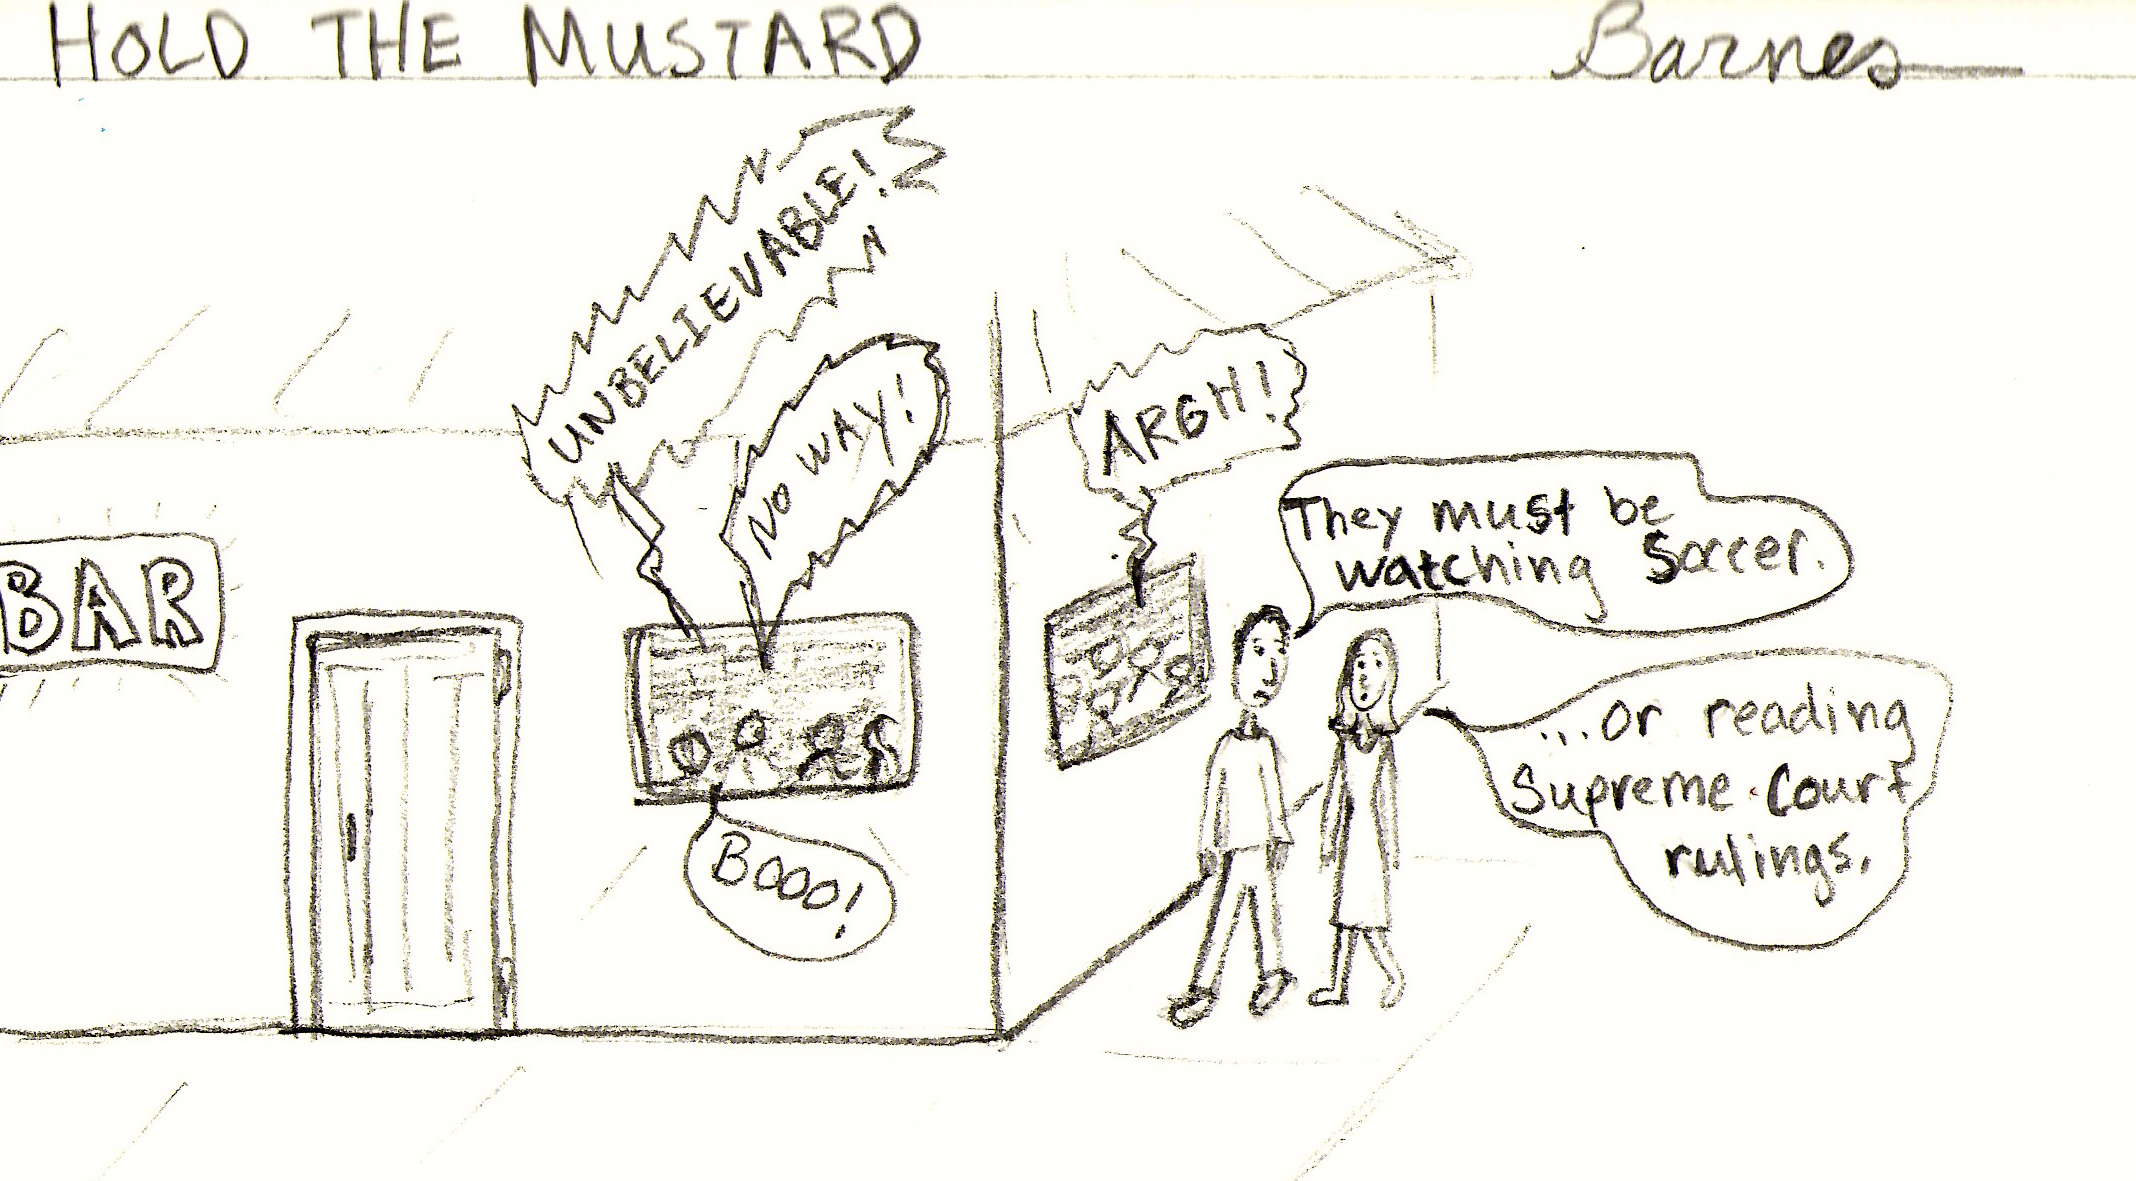 HOLD THE MUSTARD
Barnes
UNBELIEVABLE!
NO WAY!
ARGH!
They must be
watching Soccer.
BAR
...or reading
Supreme Court
rulings.
BOOO!